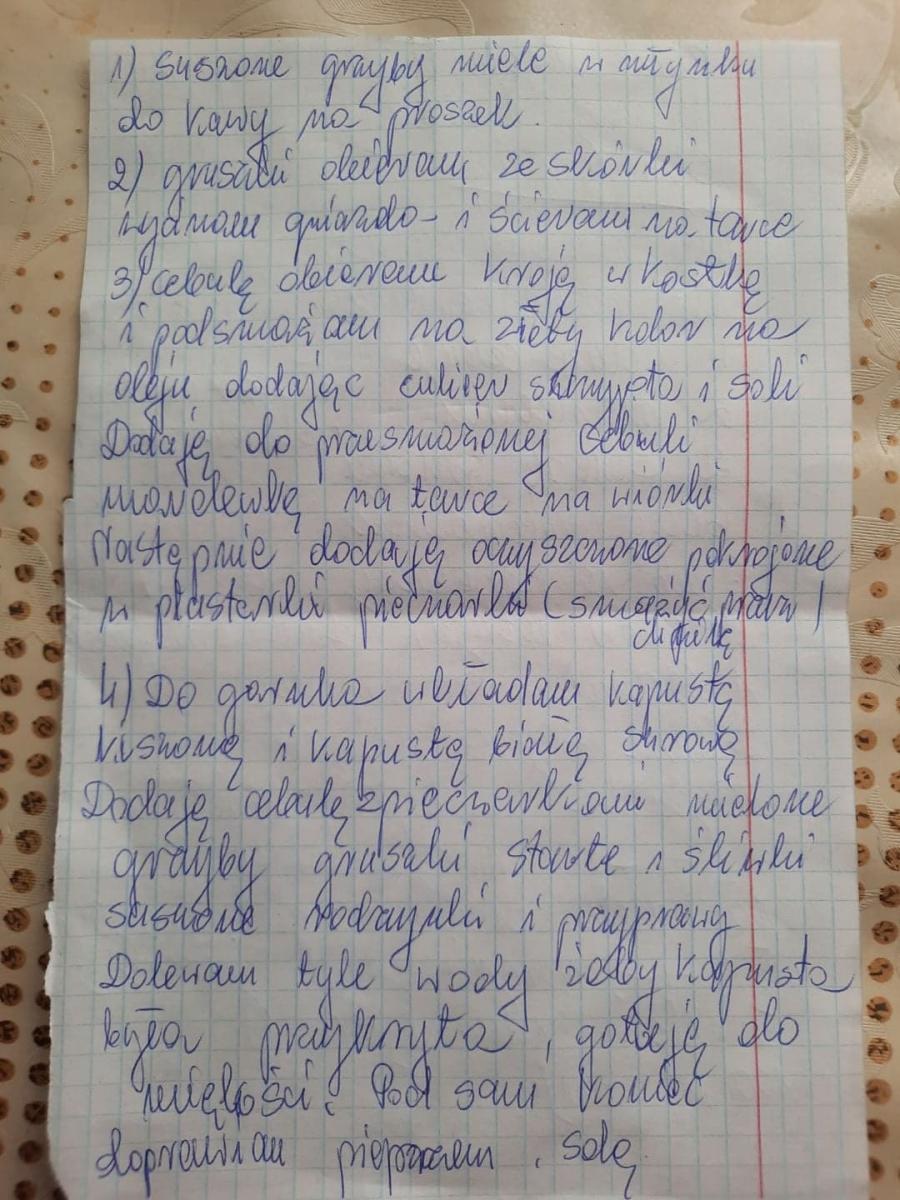 1) Suszone grzyby miele w młynku
do kawy na proszek.
2) gruszki obieram ze skórki
wyjmam gniazdo - i ścieram na tarce
3) cebulę obieram kroję w kostkę
i podsmażam na złoty kolor na
oleju dodając cukier szczypta i soli
Dodaję do przesmażonej cebuli
marchewkę na tarce na wiórki
Następnie dodaję oczyszczone pokrojone
w plasterki pieczarki (smażyć
chwilkę
4) Do garnka wkładam kapustę
kiszoną i kapustę białą surową
Dodaję cebulę z pieczarkami mielone
grzyby gruszki starte i śliwki
suszone rodzynki i przyprawy
Dolewam tyle wody żeby kapusta
była przykryta, gotuję do
miękości. Pod sam koniec
doprawiam pieprzem, solą